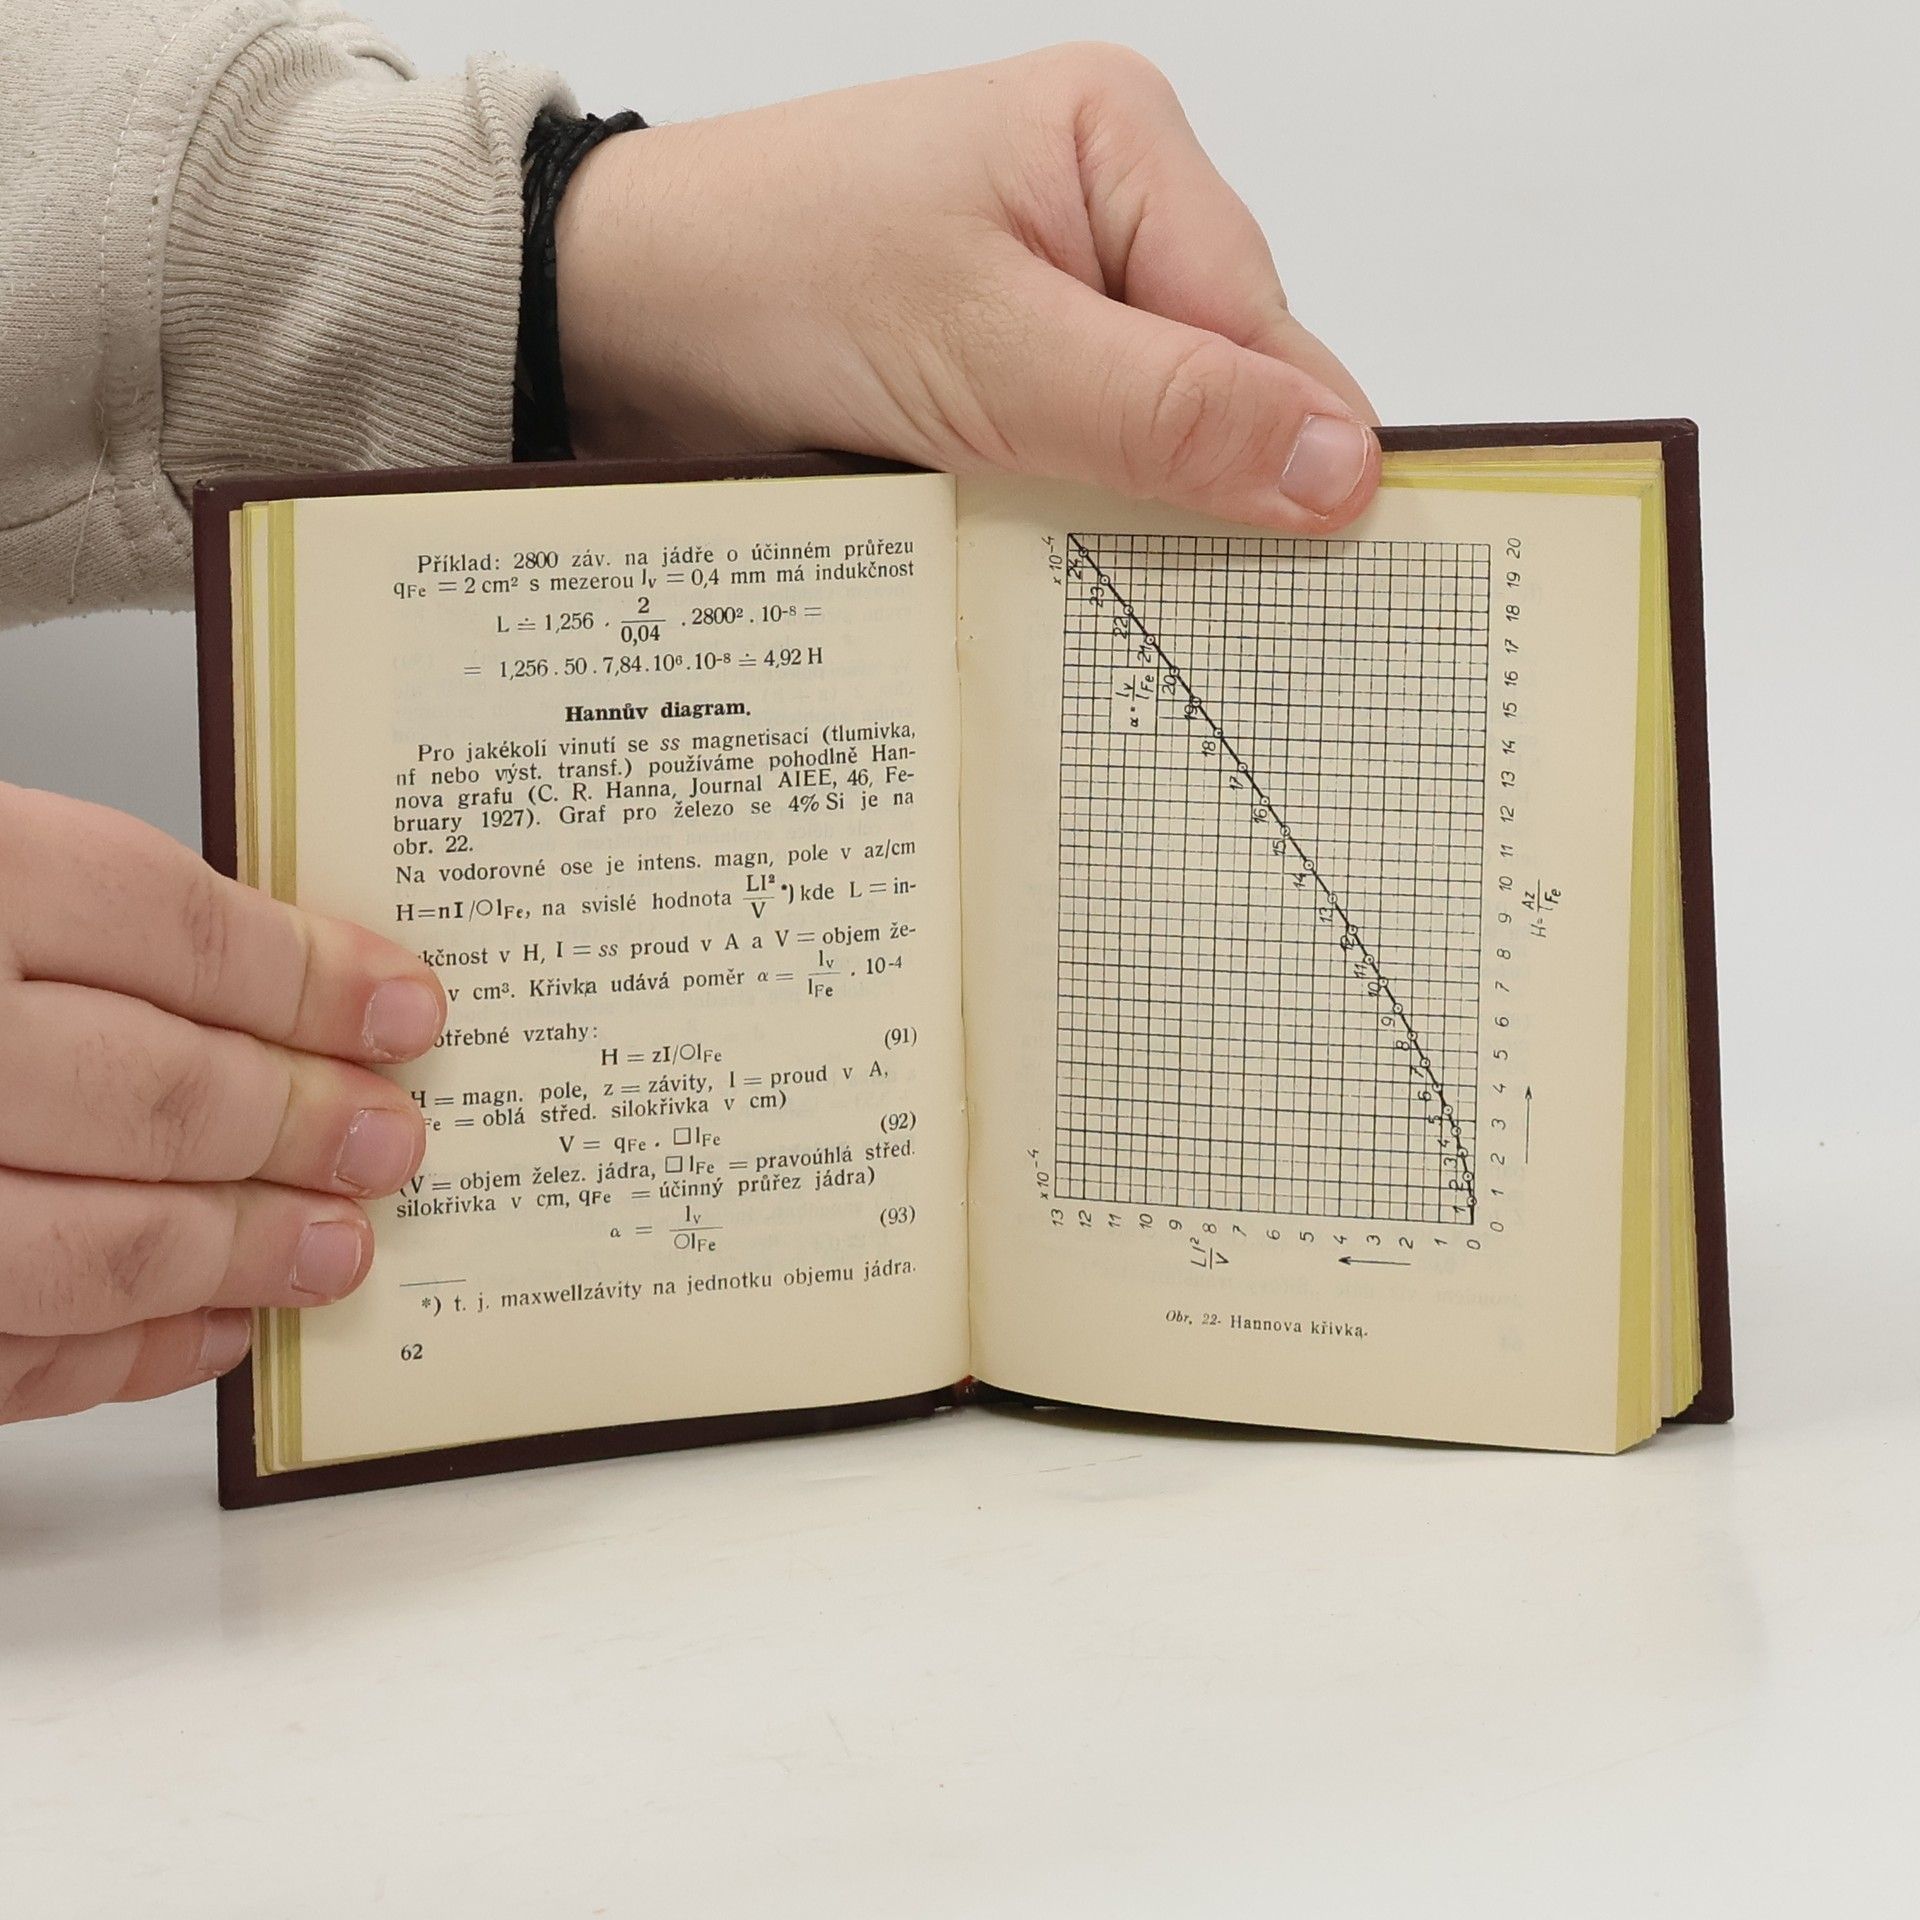 Příklad: 2800 záv. na jádře o účinném průřezu
qFe = 2 cm² s mezerou lv = 0,4 mm má indukčnost
L ≐ 1,256 · 2/0,04 . 2800² . 10-⁸ =
= 1,256 . 50 . 7,84 . 10⁶ . 10-⁸ ≐ 4,92 H
Hannův diagram.
Pro jakékoli vinutí se ss magnetisací (tlumivka,
nf nebo výst. transf.) používáme pohodlně Han-
nova grafu (C. R. Hanna, Journal AIEE, 46, Fe-
bruary 1927). Graf pro železo se 4% Si je na
obr. 22.
Na vodorovné ose je intens. magn, pole v az/cm
H=nI/○lFe, na svislé hodnota LI²/V *) kde L = in-
kčnost v H, I = ss proud v A a V = objem že-
v cm³. Křivka udává poměr α = lv/lFe . 10-⁴
otřebné vztahy:
H = zI/○lFe (91)
H = magn. pole, z = závity, I = proud v A,
Fe = oblá střed. silokřivka v cm)
V = qFe . □lFe (92)
(V = objem želez. jádra, □lFe = pravoúhlá střed.
silokřivka v cm, qFe = účinný průřez jádra)
α = lv/○lFe (93)
*) t. j. maxwellzávity na jednotku objemu jádra.
62
x 10-4
13 12 11 10 9 8 7 6 5 4 3 2 1 0
LI²/V
x 10-4
1 2 3 4 5 6 7 8 9 10 11 12 13 14 15 16 17 18 19 20 21 22 23 24
α = lv/lFe
0 1 2 3 4 5 6 7 8 9 10 11 12 13 14 15 16 17 18 19 20
H = Az/lFe
Obr. 22. Hannova křivka.